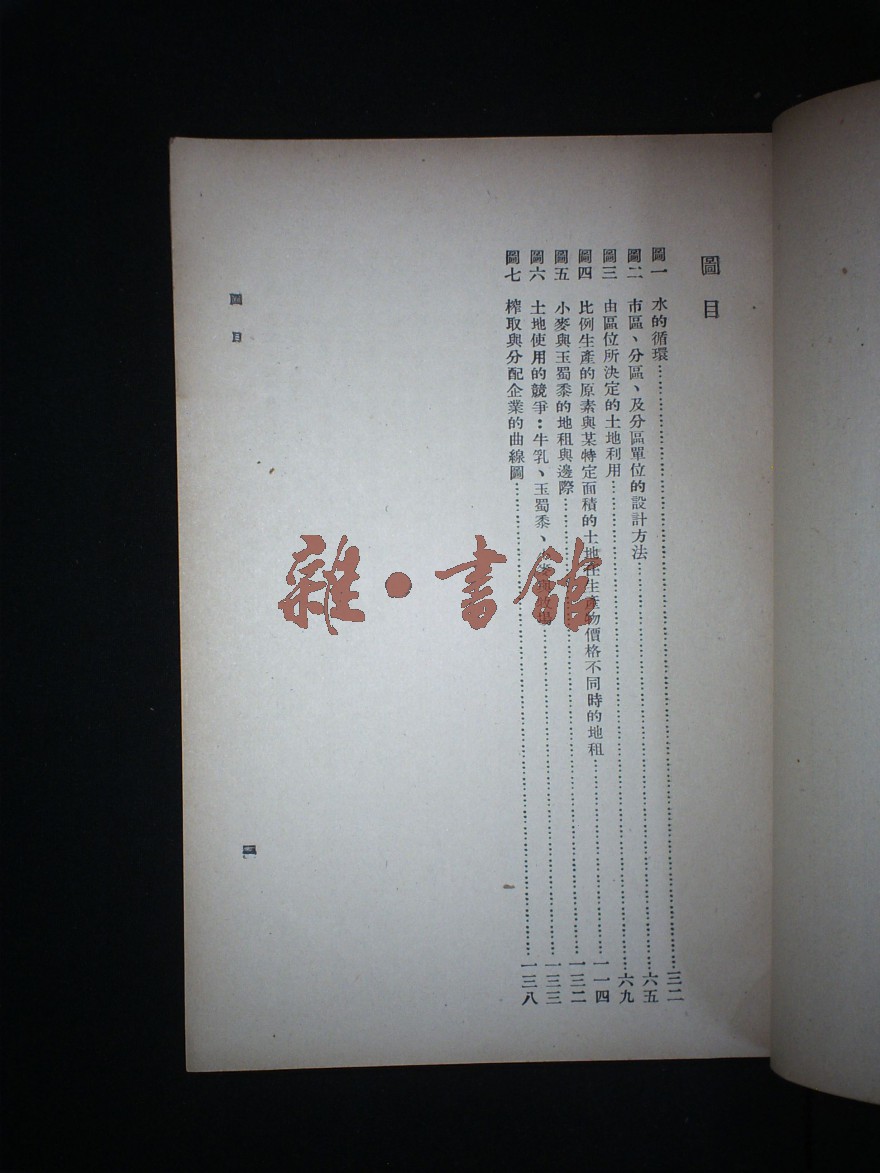 圖目
圖一 水的循環……三二
圖二 市區、分區、及分區單位的設計方法……六五
圖三 由區位所決定的土地利用……六九
圖四 比例生產的原素與某特定面積的土地在生產物價格不同時的地租……一一四
圖五 小麥與玉蜀黍的地租與邊際……一三二
圖六 土地使用的競爭：牛乳、玉蜀黍、……一三三
圖七 榨取與分配企業的曲線圖……一三八
圖目
雜·書館